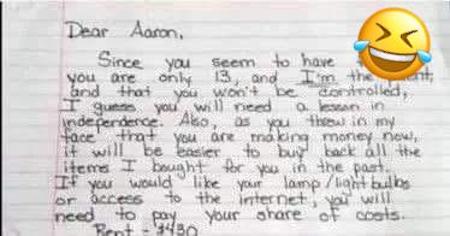 Dear Aaron,
Since you seem to have
you are only 13, and I'm the
and that you won't be controlled,
I guess you will need a lesson in
independence. Also, as you threw in my
face that you are making money now,
it will be easier to buy back all the
items I bought for you in the past.
If you would like your lamp/lightbulbs
or access to the internet, you will
need to pay your share of costs.
Rent - $430